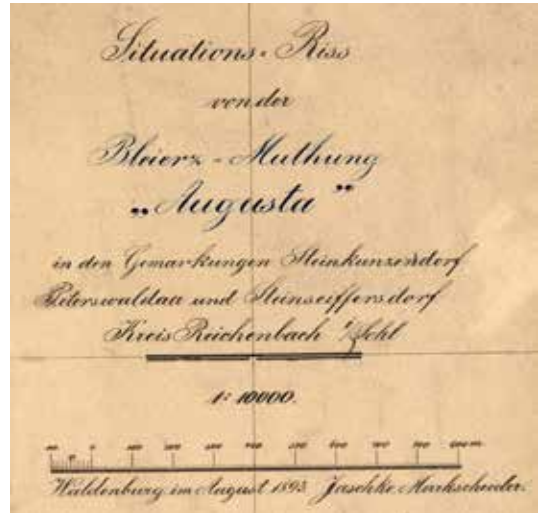 Situations-Riss
von der
Bleierz-Muthung
„Augusta”
in den Gemarkungen Steinkunzendorf
Peterswaldau und Steinseiffersdorf
Kreis Reichenbach i/Schl
1:10000.
100 0 100 200 300 400 500 600 700 800 900 m
Waldenburg im August 1893 Jaschke, Markscheider.